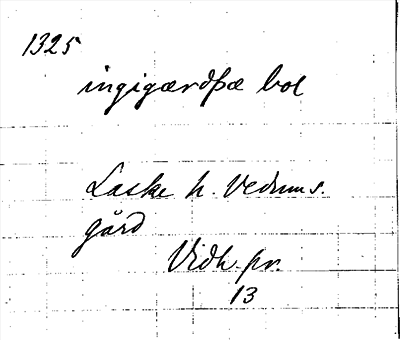 1325
ingigærdþæ bol
Laske h. Vedums.
gård
Vidh. pr.
13